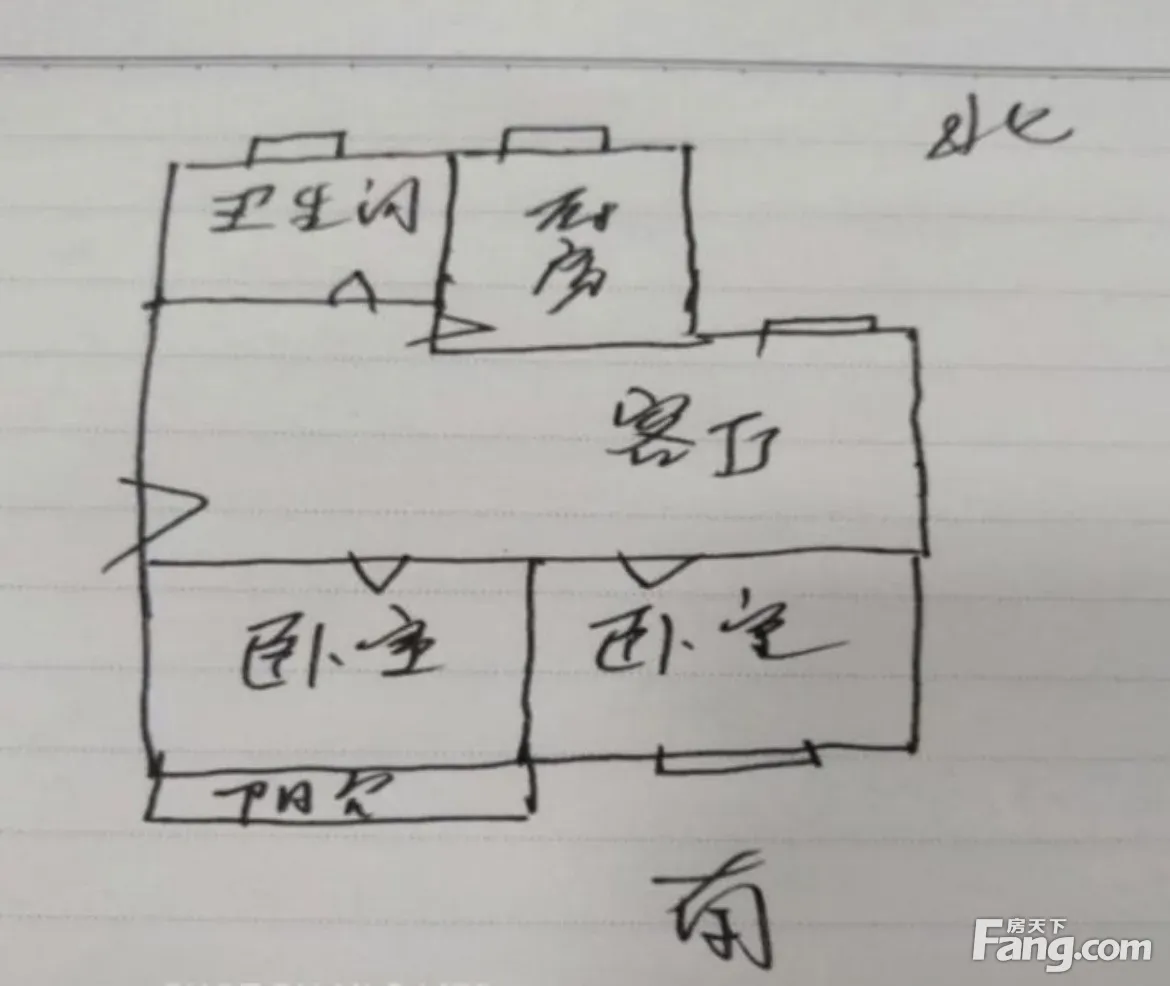 北
卫生间
厨
房
客厅
卧室
卧室
阳台
南
房天下
Fang.com